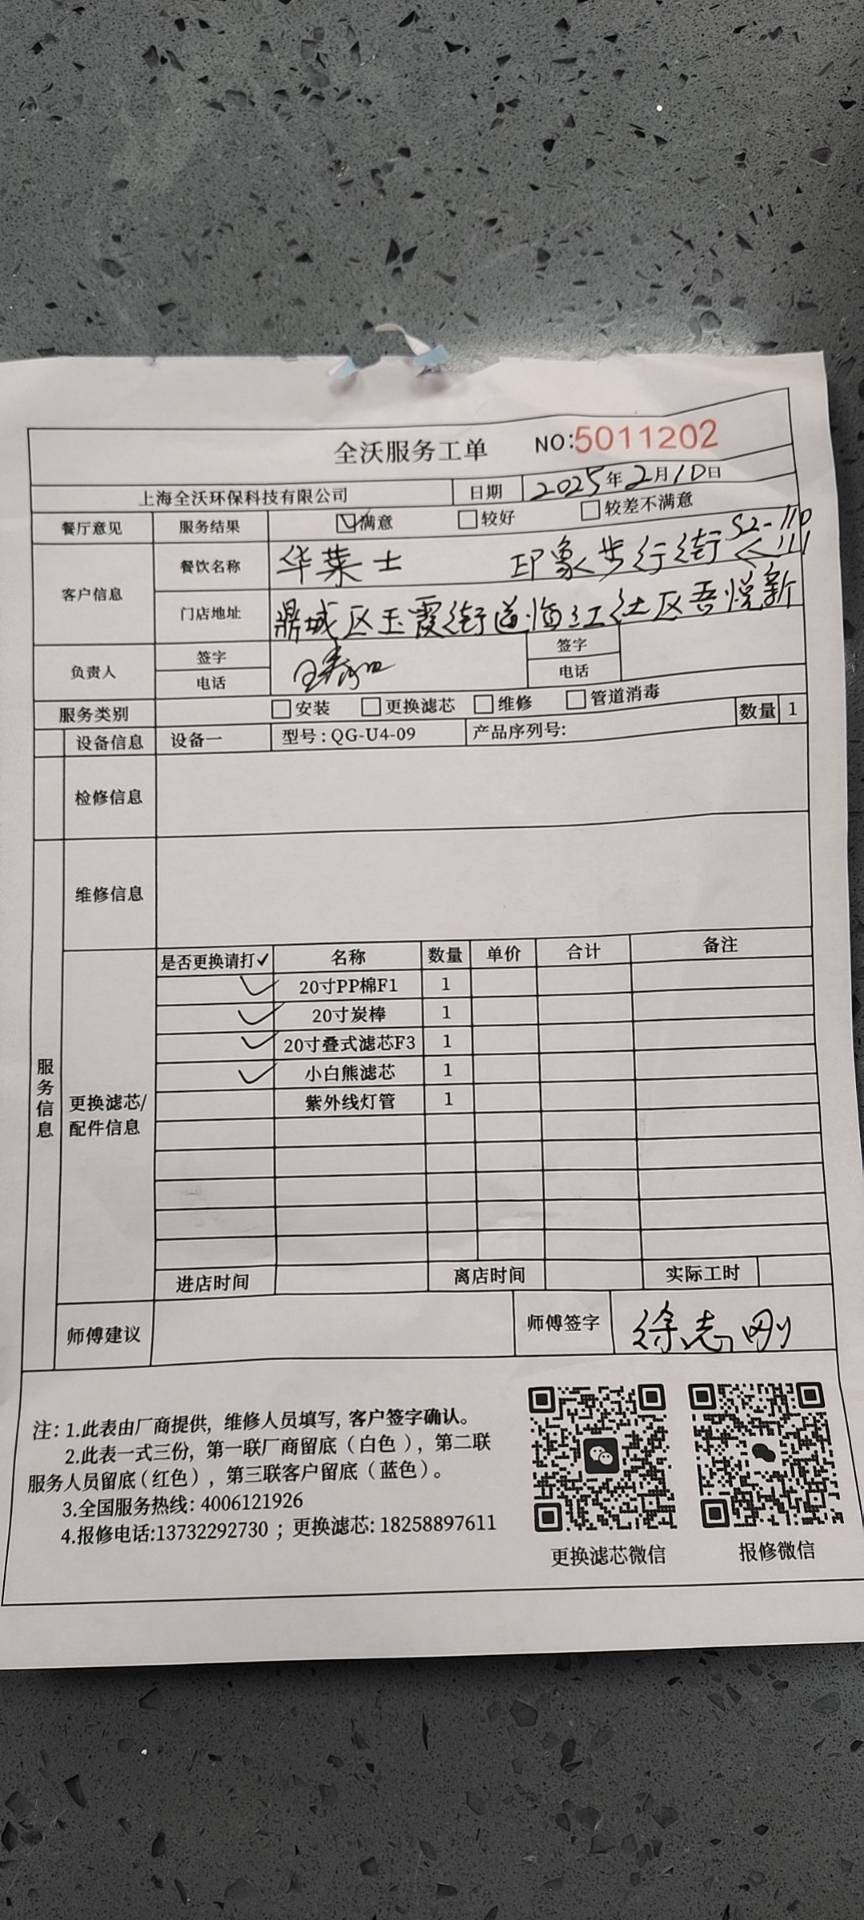 全沃服务工单 NO:5011202
上海全沃环保科技有限公司 日期 2025年2月10日
餐厅意见 服务结果 满意 较好 较差不满意
客户信息 餐饮名称 华莱士 印象步行街 S2-110
111
门店地址 鼎城区玉霞街道临江社区吾悦新
负责人 签字 签字
电话 电话
服务类别 安装 更换滤芯 维修 管道消毒
设备信息 设备一 型号:QG-U4-09 产品序列号: 数量 1
检修信息
维修信息
服务信息
更换滤芯/
配件信息
是否更换请打✓ 名称 数量 单价 合计 备注
✓ 20寸PP棉F1 1
✓ 20寸炭棒 1
✓ 20寸叠式滤芯F3 1
✓ 小白熊滤芯 1
紫外线灯管 1
进店时间 离店时间 实际工时
师傅建议 师傅签字 徐志刚
注: 1.此表由厂商提供, 维修人员填写, 客户签字确认。
2.此表一式三份, 第一联厂商留底(白色), 第二联
服务人员留底(红色), 第三联客户留底(蓝色)。
3.全国服务热线: 4006121926
4.报修电话:13732292730 ; 更换滤芯: 18258897611
更换滤芯微信 报修微信